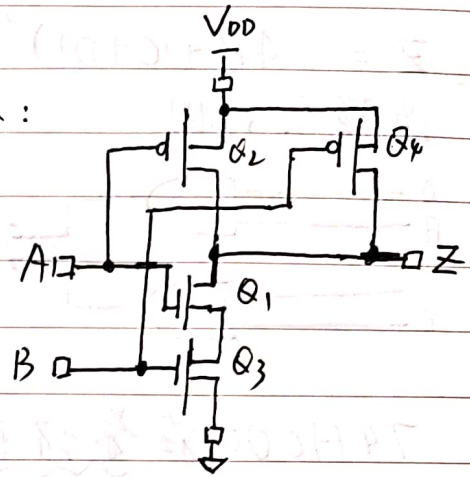 VDD
:
Q2
Q4
A
Z
Q1
B
Q3